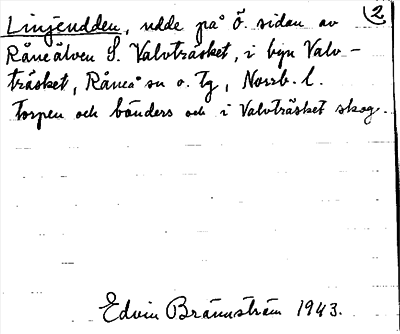 2
Linjeudden, udde på Ö. sidan av
Råneälven S. Valvträsket, i byn Valv-
träsket, Råneå sn o. tg, Norrb. l.
Torpen och bönders och i Valvträsket skog.
Edvin Brännström 1943.